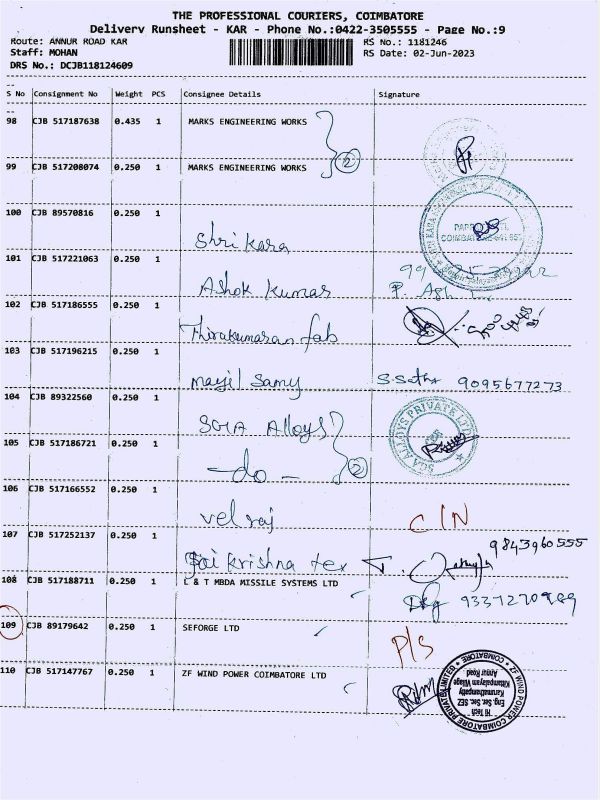 THE PROFESSIONAL COURIERS, COIMBATORE
Delivery Runsheet - KAR - Phone No.:0422-3505555 - Page No.:9
Route: ANNUR ROAD KAR
RS No.: 1181246
Staff: MOHAN
RS Date: 02-Jun-2023
DRS No.: DCJB118124609
S No Consignment No Weight PCS Consignee Details Signature
98 CJB 517187638 0.435 1 MARKS ENGINEERING WORKS
2
99 CJB 517208074 0.250 1 MARKS ENGINEERING WORKS
100 CJB 89570816 0.250 1
Shri Kara
101 CJB 517221063 0.250 1
Ashok Kumar
102 CJB 517186555 0.250 1
Thirukumaran fab
103 CJB 517196215 0.250 1
Mayil Samy 9095677273
104 CJB 89322560 0.250 1
SGA Alloys
SGA ALLOYS PRIVATE LTD
105 CJB 517186721 0.250 1
-do- 2
106 CJB 517166552 0.250 1
Velraj C/N
107 CJB 517252137 0.250 1
9843960555
Sai Krishna tex
108 CJB 517188711 0.250 1 L & T MBDA MISSILE SYSTEMS LTD
109 CJB 89179642 0.250 1 SEFORGE LTD
P/S
110 CJB 517147767 0.250 1 ZF WIND POWER COIMBATORE LTD
ZF WIND POWER COIMBATORE PRIVATE LIMITED
Hi Tech
Eng. Sec. SEZ
Karumathampatty
Kittampalayam Village
Annur Road